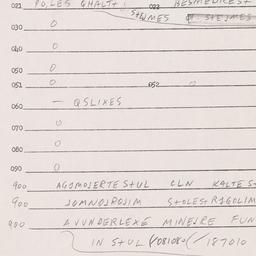 021 POLES GHALT+ 022 BESMEURES+
STEJMES STEJMES
030 0
040 0
050 0
051 0 052 0
060 — QSLIXES
070 0
080 0
090 0
900 AGJMOJERTE STUL CLN KALTE S
900 JOMNOJROJIM STOLEST RIGOLIM
980 AVUNDERLEXE MINEJRE FUN
IN STUL (/081080(/187010